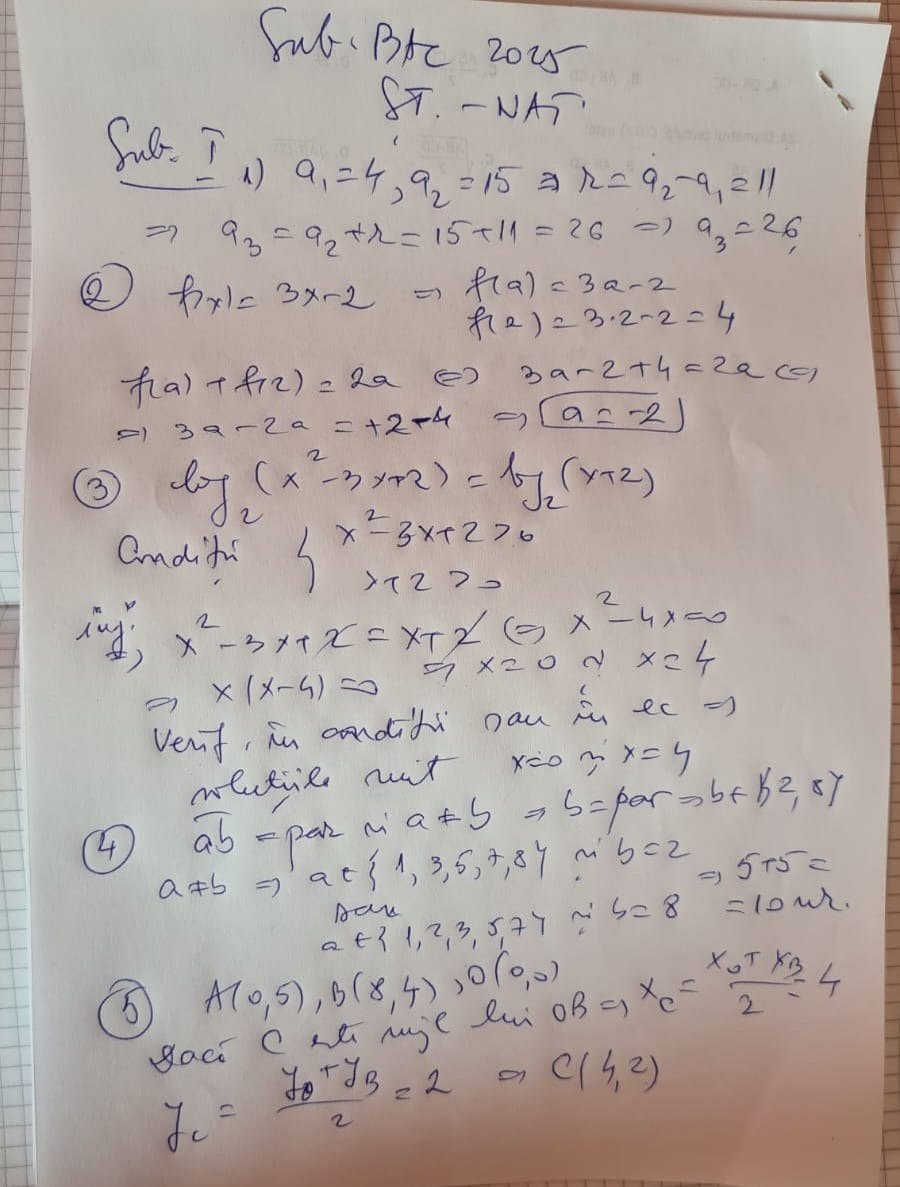 Sub. BAC 2025
ŞT. - NAT
Sub. I 1) a₁ = 4, a₂ = 15 ⇒ r = a₂ - a₁ = 11
⇒ a₃ = a₂ + r = 15 + 11 = 26 ⇒ a₃ = 26,
② f(x) = 3x - 2 ⇒ f(a) = 3a - 2
f(2) = 3·2 - 2 = 4
f(a) + f(2) = 2a ⇔ 3a - 2 + 4 = 2a ⇔
⇒ 3a - 2a = +2 - 4 ⇒ a = -2
③ log₂(x² - 3x + 2) = log₂(x + 2)
Condiții { x² - 3x + 2 > 0
x + 2 > 0
inj. ⇒, x² - 3x + 2 = x + 2 ⇔ x² - 4x = 0
⇒ x(x - 4) = 0 ⇒ x = 0 și x = 4
Verif. în condiții sau în ec ⇒
soluțiile sunt x = 0 și x = 4
④ ab = par și a ≠ b ⇒ b = par ⇒ b ∈ {2, 8}
a ≠ b ⇒ a ∈ {1, 3, 5, 7, 8} și b = 2 ⇒ 5 + 5 =
sau
a ∈ {1, 2, 3, 5, 7} și b = 8 = 10 nr.
⑤ A(0, 5), B(8, 4), O(0, 0)
Dacă C este mijl lui OB ⇒ x_C = (x_O + x_B)/2 = 4
y_C = (y_O + y_B)/2 = 2 ⇒ C(4, 2)